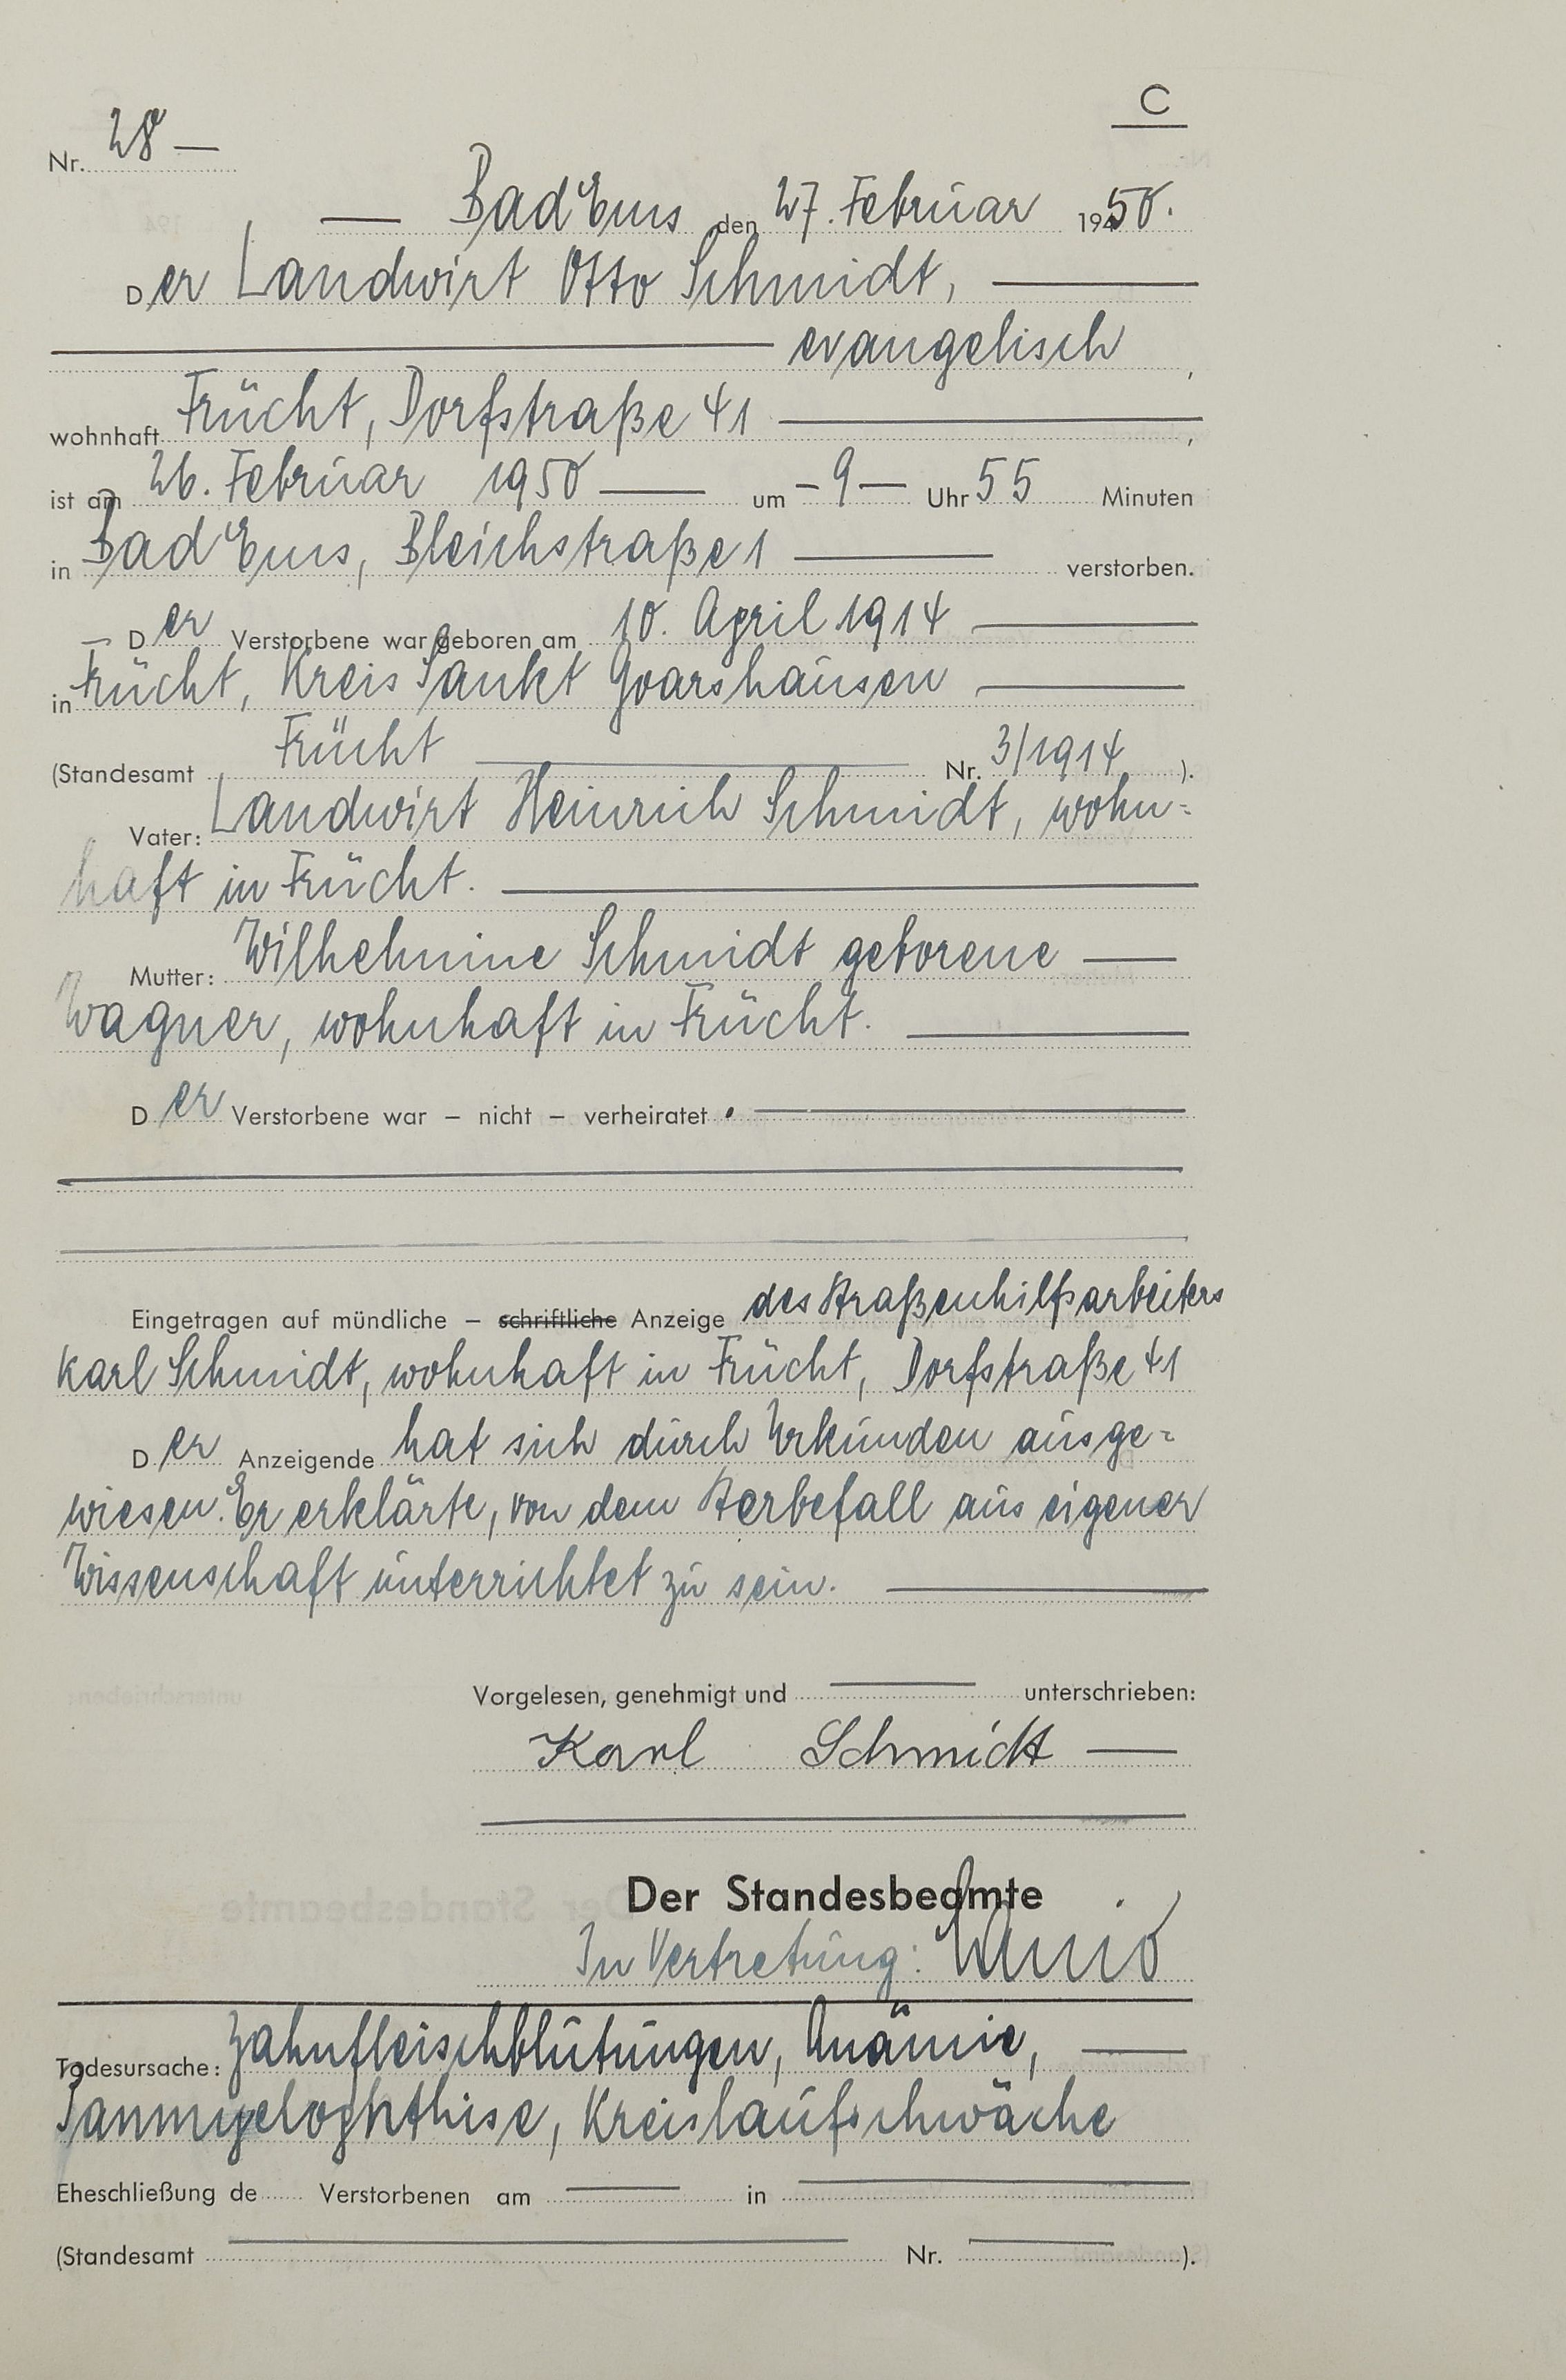 C
Nr. 28 —
— Bad Ems den 27. Februar 1950.
Der Landwirt Otto Schmidt, —
— evangelisch,
wohnhaft Frücht, Dorfstraße 41 —,
ist am 26. Februar 1950 — um – 9 — Uhr 55 Minuten
in Bad Ems, Bleichstraße 1 — verstorben.
— Der Verstorbene war geboren am 10. April 1914 —
in Frücht, Kreis Sankt Goarshausen —
(Standesamt Frücht — Nr. 3/1914).
Vater: Landwirt Heinrich Schmidt, wohn=
haft in Frücht. —
Mutter: Wilhelmine Schmidt geborene —
Wagner, wohnhaft in Frücht. —
Der Verstorbene war – nicht – verheiratet. —
Eingetragen auf mündliche – schriftliche Anzeige des Straßenhilfsarbeiters
Karl Schmidt, wohnhaft in Frücht, Dorfstraße 41
Der Anzeigende hat sich durch Urkunden ausge=
wiesen. Er erklärte, von dem Sterbefall aus eigener
Wissenschaft unterrichtet zu sein. —
Vorgelesen, genehmigt und — unterschrieben:
Karl Schmidt —
Der Standesbeamte
In Vertretung:
Todesursache: Zahnfleischblutungen, Anämie, —
Panmyelophthise, Kreislaufschwäche
Eheschließung de Verstorbenen am — in —
(Standesamt — Nr. —).